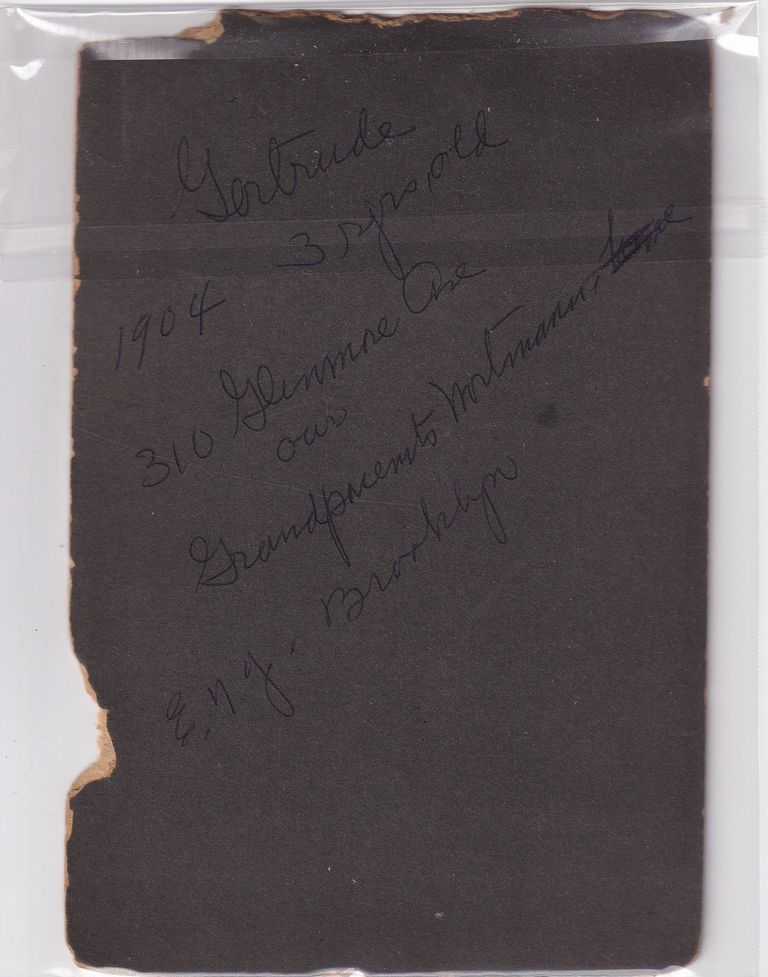 Gertrude
3 yrs, old
1904
310 Glenmore Ave
our
Grandparents Wortmann,
E. N. Y. Brooklyn